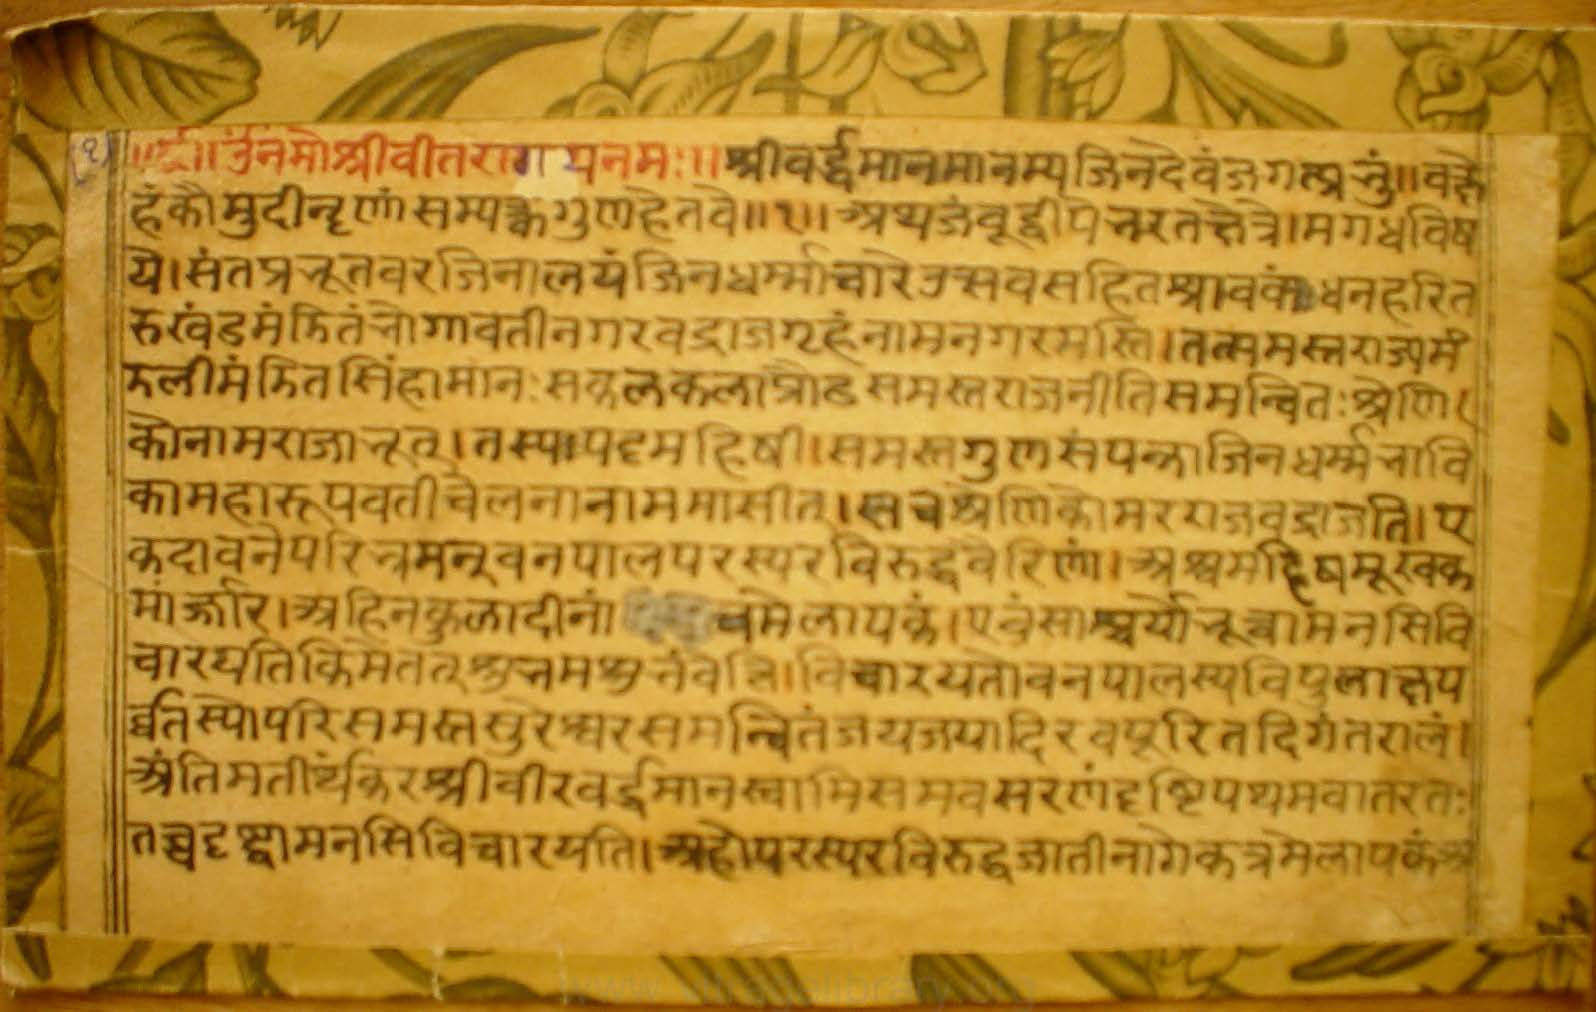 ॥र्द्द॥ उँनमोश्रीवीतरागायनमः॥ श्रीवर्द्धमानमानम्यजिनदेवंजगत्प्रभुं॥ वक्षे
हंकौमुदीनृणांसम्यक्त्वगुणहेतवे॥१॥ अथजंबूद्वीपेभरतक्षेत्रे।मगधविष
ये।संतप्रभूतवरजिनालयंजिनधर्म्माचारेउत्सवसहितश्रावकंधनहरित
रुखंडमंडितंभोगावतीनगरवद्राजगृहंनामनगरमस्ति।तत्समस्तराज्यमं
डलीमंडितसिंहामानःसकलकलाप्रौढसमस्तराजनीतिसमन्वितःश्रेणि
कोनामराजाभूत्।तस्यपट्टमहिषी।समस्तगुणसंपन्नाजिनधर्म्मभावि
कामहारूपवतीचेलनानाममासीत।सचश्रेणिकोमरराजवद्राजति।ए
कदावनेपरिभ्रमन्वनपालपरस्परविरुद्धवैरिणां।अश्वमहिषमूखक
मांर्जार।अहिनकुलादीनां चमेलायकं।एवंसाश्चर्योभूत्वामनसिवि
चारयतिकिमेतत्श्रुभमश्रुभंवेति।विचारयतोवनपालस्यविपुलाक्षप
र्व्वतस्योपरिसमस्तसुरेश्वरसमन्वितंजयजयादिरवपूरितदिगंतरालं।
अंतिमतीर्थकरश्रीवीरवर्द्धमानस्वामिसमवसरणंदृष्टिपथमवातरतः
तच्चदृष्ट्वामनसिविचारयति।अहोपरस्परविरुद्धजातीनागेकत्रमेलापकं